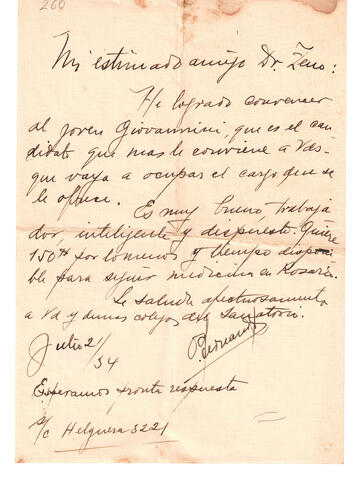 260
Mi estimado amigo Dr. Zeno:
He logrado convencer
al joven Giovannini, que es el can-
didato que mas le conviene a Vds.
que vaya a ocupar el cargo que se
le ofrece.
Es muy bueno, trabaja
dor, inteligente y dispuesto. Quiere
150 por lo menos y tiempo disponi
ble para seguir medicina en Rosario.
Le saluda afectuosamente
a Vd y demas colegas del Sanatorio.
Julio 2/
34
Esperamos pronta respuesta
s/c Helguera 3221